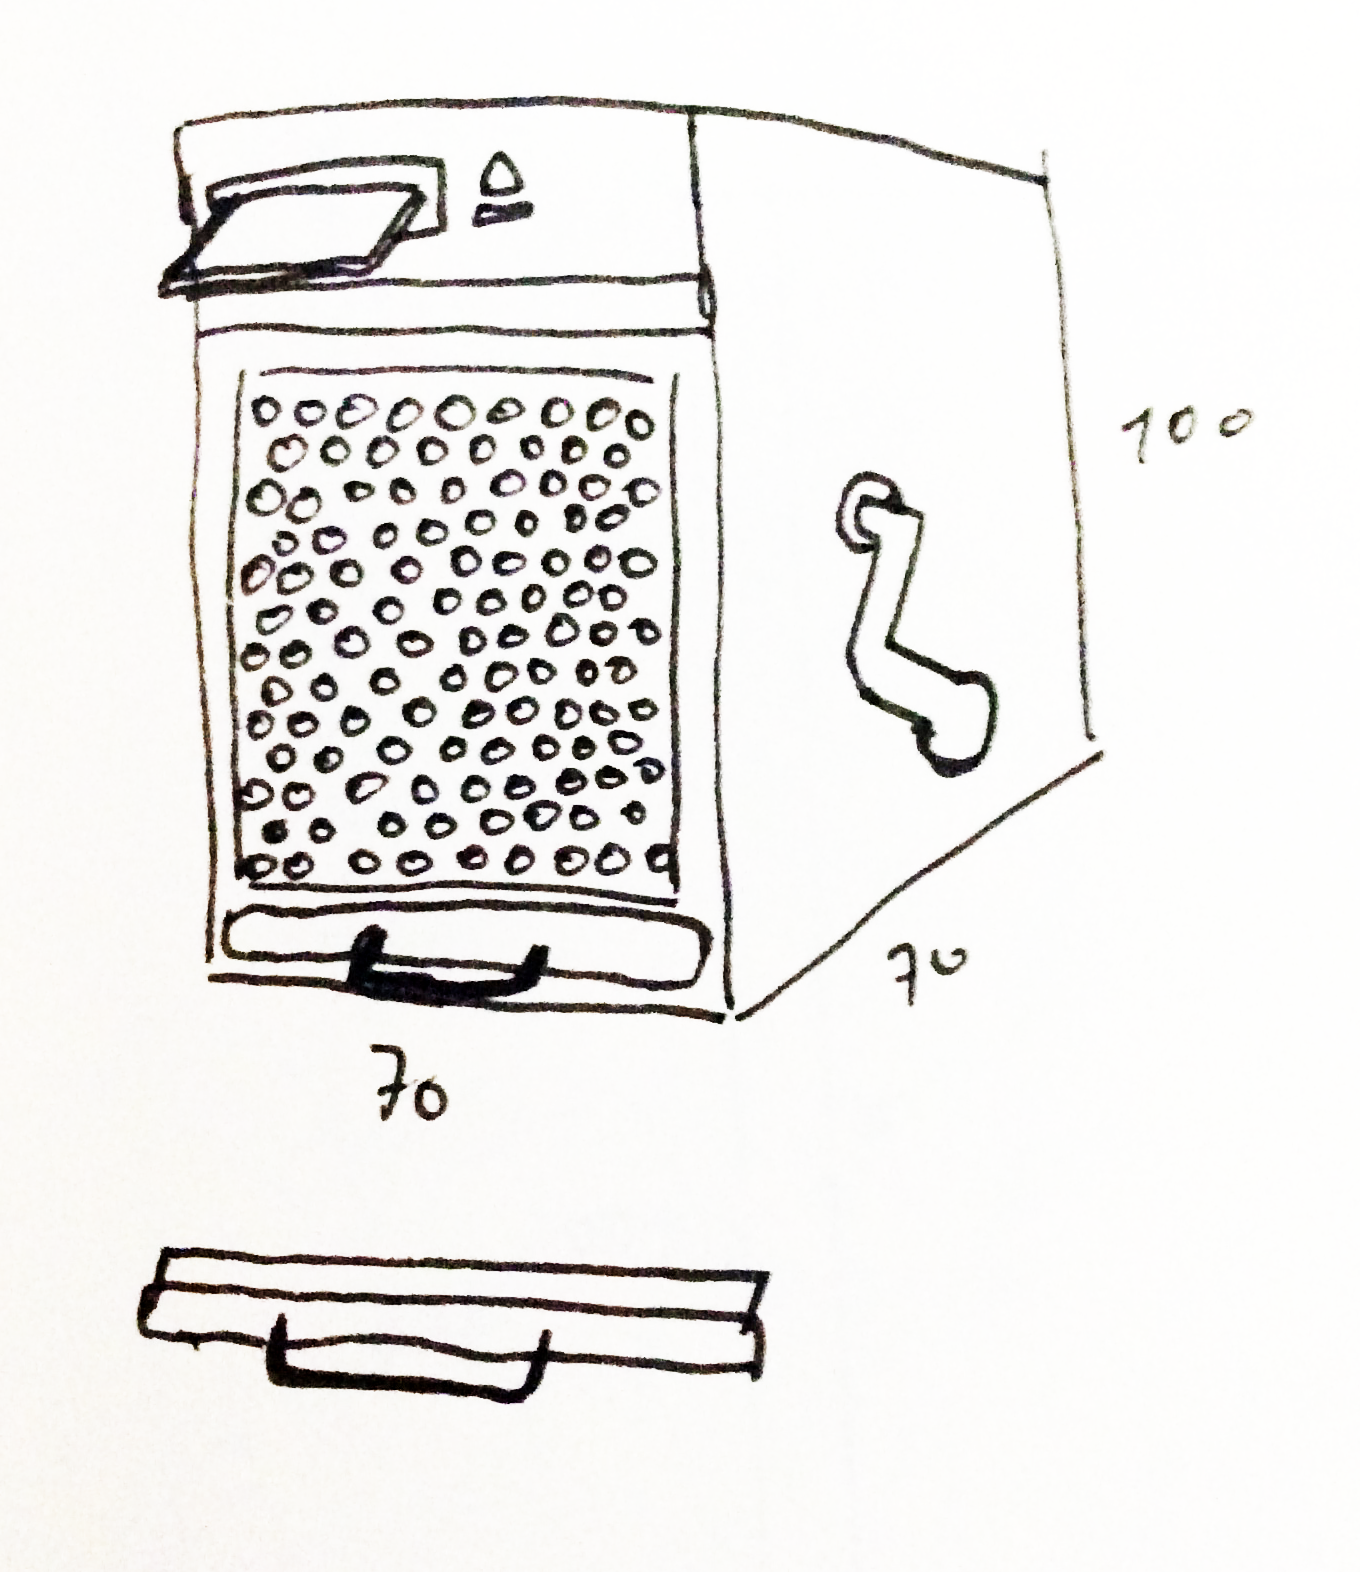 100
70
70